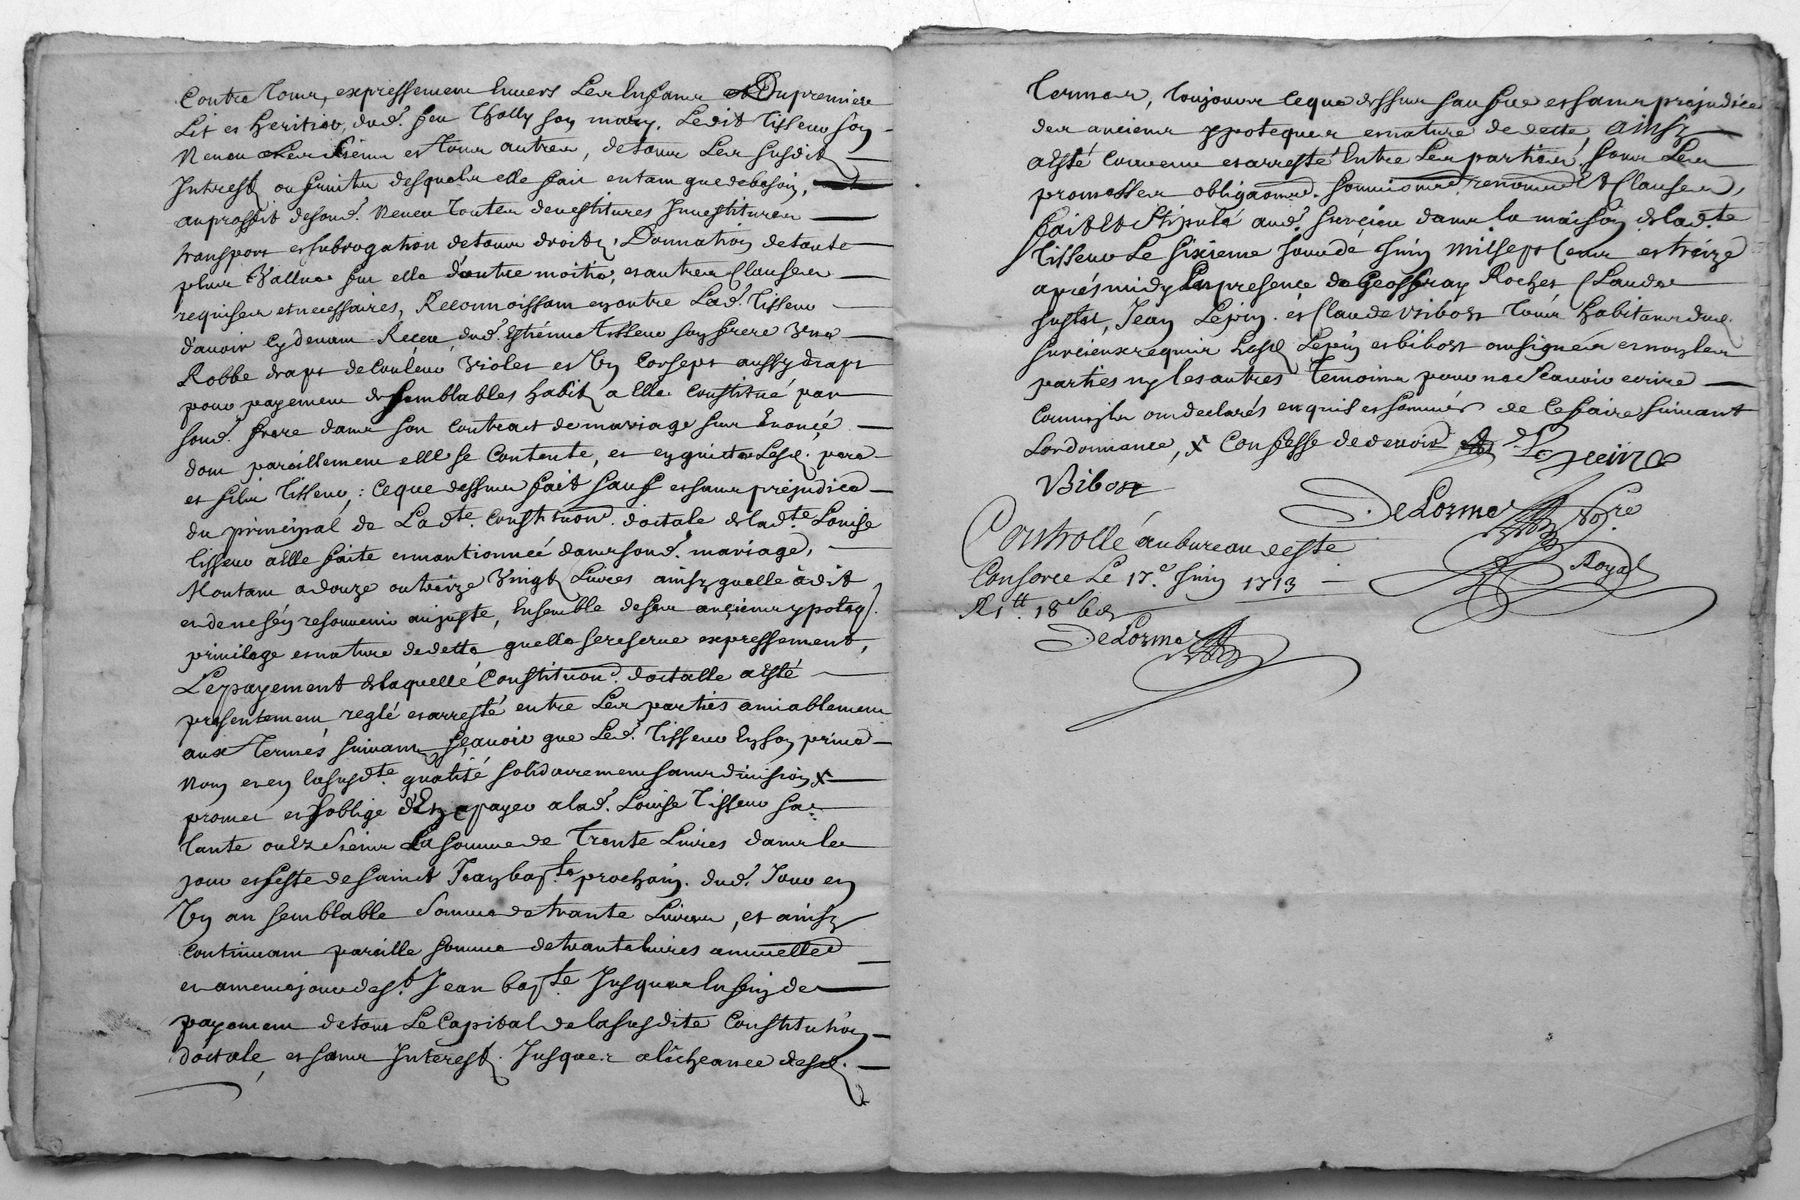 Contre tous, expressement Envers Les Enfans Du premier
Lit et heritier, dud. feu Tholly son mary, Ledit Tisseur son
Neveu Les siens et tous autres, de tous Les susdits
Interest ou fruits desquels elle fait en tant que de besoin,
au proffit desond. Neveu toutes devestitures Investitures
transport et subrogation de tous droits, Donnation de toute
plus Vallue fut elle d'outre moitié, et autres Clauses
requises et necessaires, Reconnoissant en outre Lad. Tisseur
d'avoir Cydevant Receu, dud. Estienne tisseur son frere Une
Robbe drapt de Couleur Violet et Un Corsept aussy drapt
pour payement de semblables habits a elle Constitué par
sond. frere dans son Contract de mariage sus Enoncé
dont pareillement elle se Contente, et en quitte Lesd. pere
et fils Tisseur, : Ceque dessus fait sauf et sans prejudice
du principal de Ladte. Constituon. doctale de ladte. Louise
tisseur a Elle faite et mantionneé dans sond. mariage,
Montant a douze ou treize Vingt Livres ainsy quelle à dit
et de ne s'en resouvenir aujuste, Ensemble de ses anciens ypoteq.
privilege et nature de dette quelle se reserve expressement,
Le payement de laquelle Constituon. doctalle a Esté
presentement reglé et arresté entre Les parties amiablement
aux termes suivans sçavoir que Led. Tisseur En son privé
Nom et en lasusdte. qualité solidairement sans division x
promet et soblige d'En payer a lad. Louise Tisseur sa
tante ou Ez siens La somme de Trente Livres dans le
jour et feste de sainct Jean bapte prochain. dud. Jour en
Un an semblable somme de trante Livres, et ainsy
Continuant pareille somme de trante livres annuelle
et a meme jour de st. Jean bapte. Jusques la fin de
payement de tout Le Capital de la susdite Constitution
doctale, et sans Interest. Jusques a lécheance desd.
termes, toujours ceque dessus sauf et sans prejudice
des anciens ypoteques et nature de dette, ainsy
a Esté Convenu et arresté Entre Les parties, sous Les
promesses obligaons. soumions. renons. & Clauses,
fait et stipulé aud. Survieu dans la maison de lad.te
Tisseur Le sixieme jour de Juin Mil sept Cent et treize
aprés midy En presence de Geoffray Rochet Claude
Jean Lepin. et Claude Bibost tous habitans dud.
Survieux requis Lesd. Lepin et bibost ont signé et non les
parties ny les autres temoins pour ne sçavoir ecrire
Comme ils ont declarés enquis et sommés de Ce faire suivant
Lordonnance, x Confesse de devoir
Bibost
DeLorme Nore.
Royal
Controllé au bureau de Ste
Consorce Le 17.e Juin 1713
R 1tt. 18s 6d
DeLorme